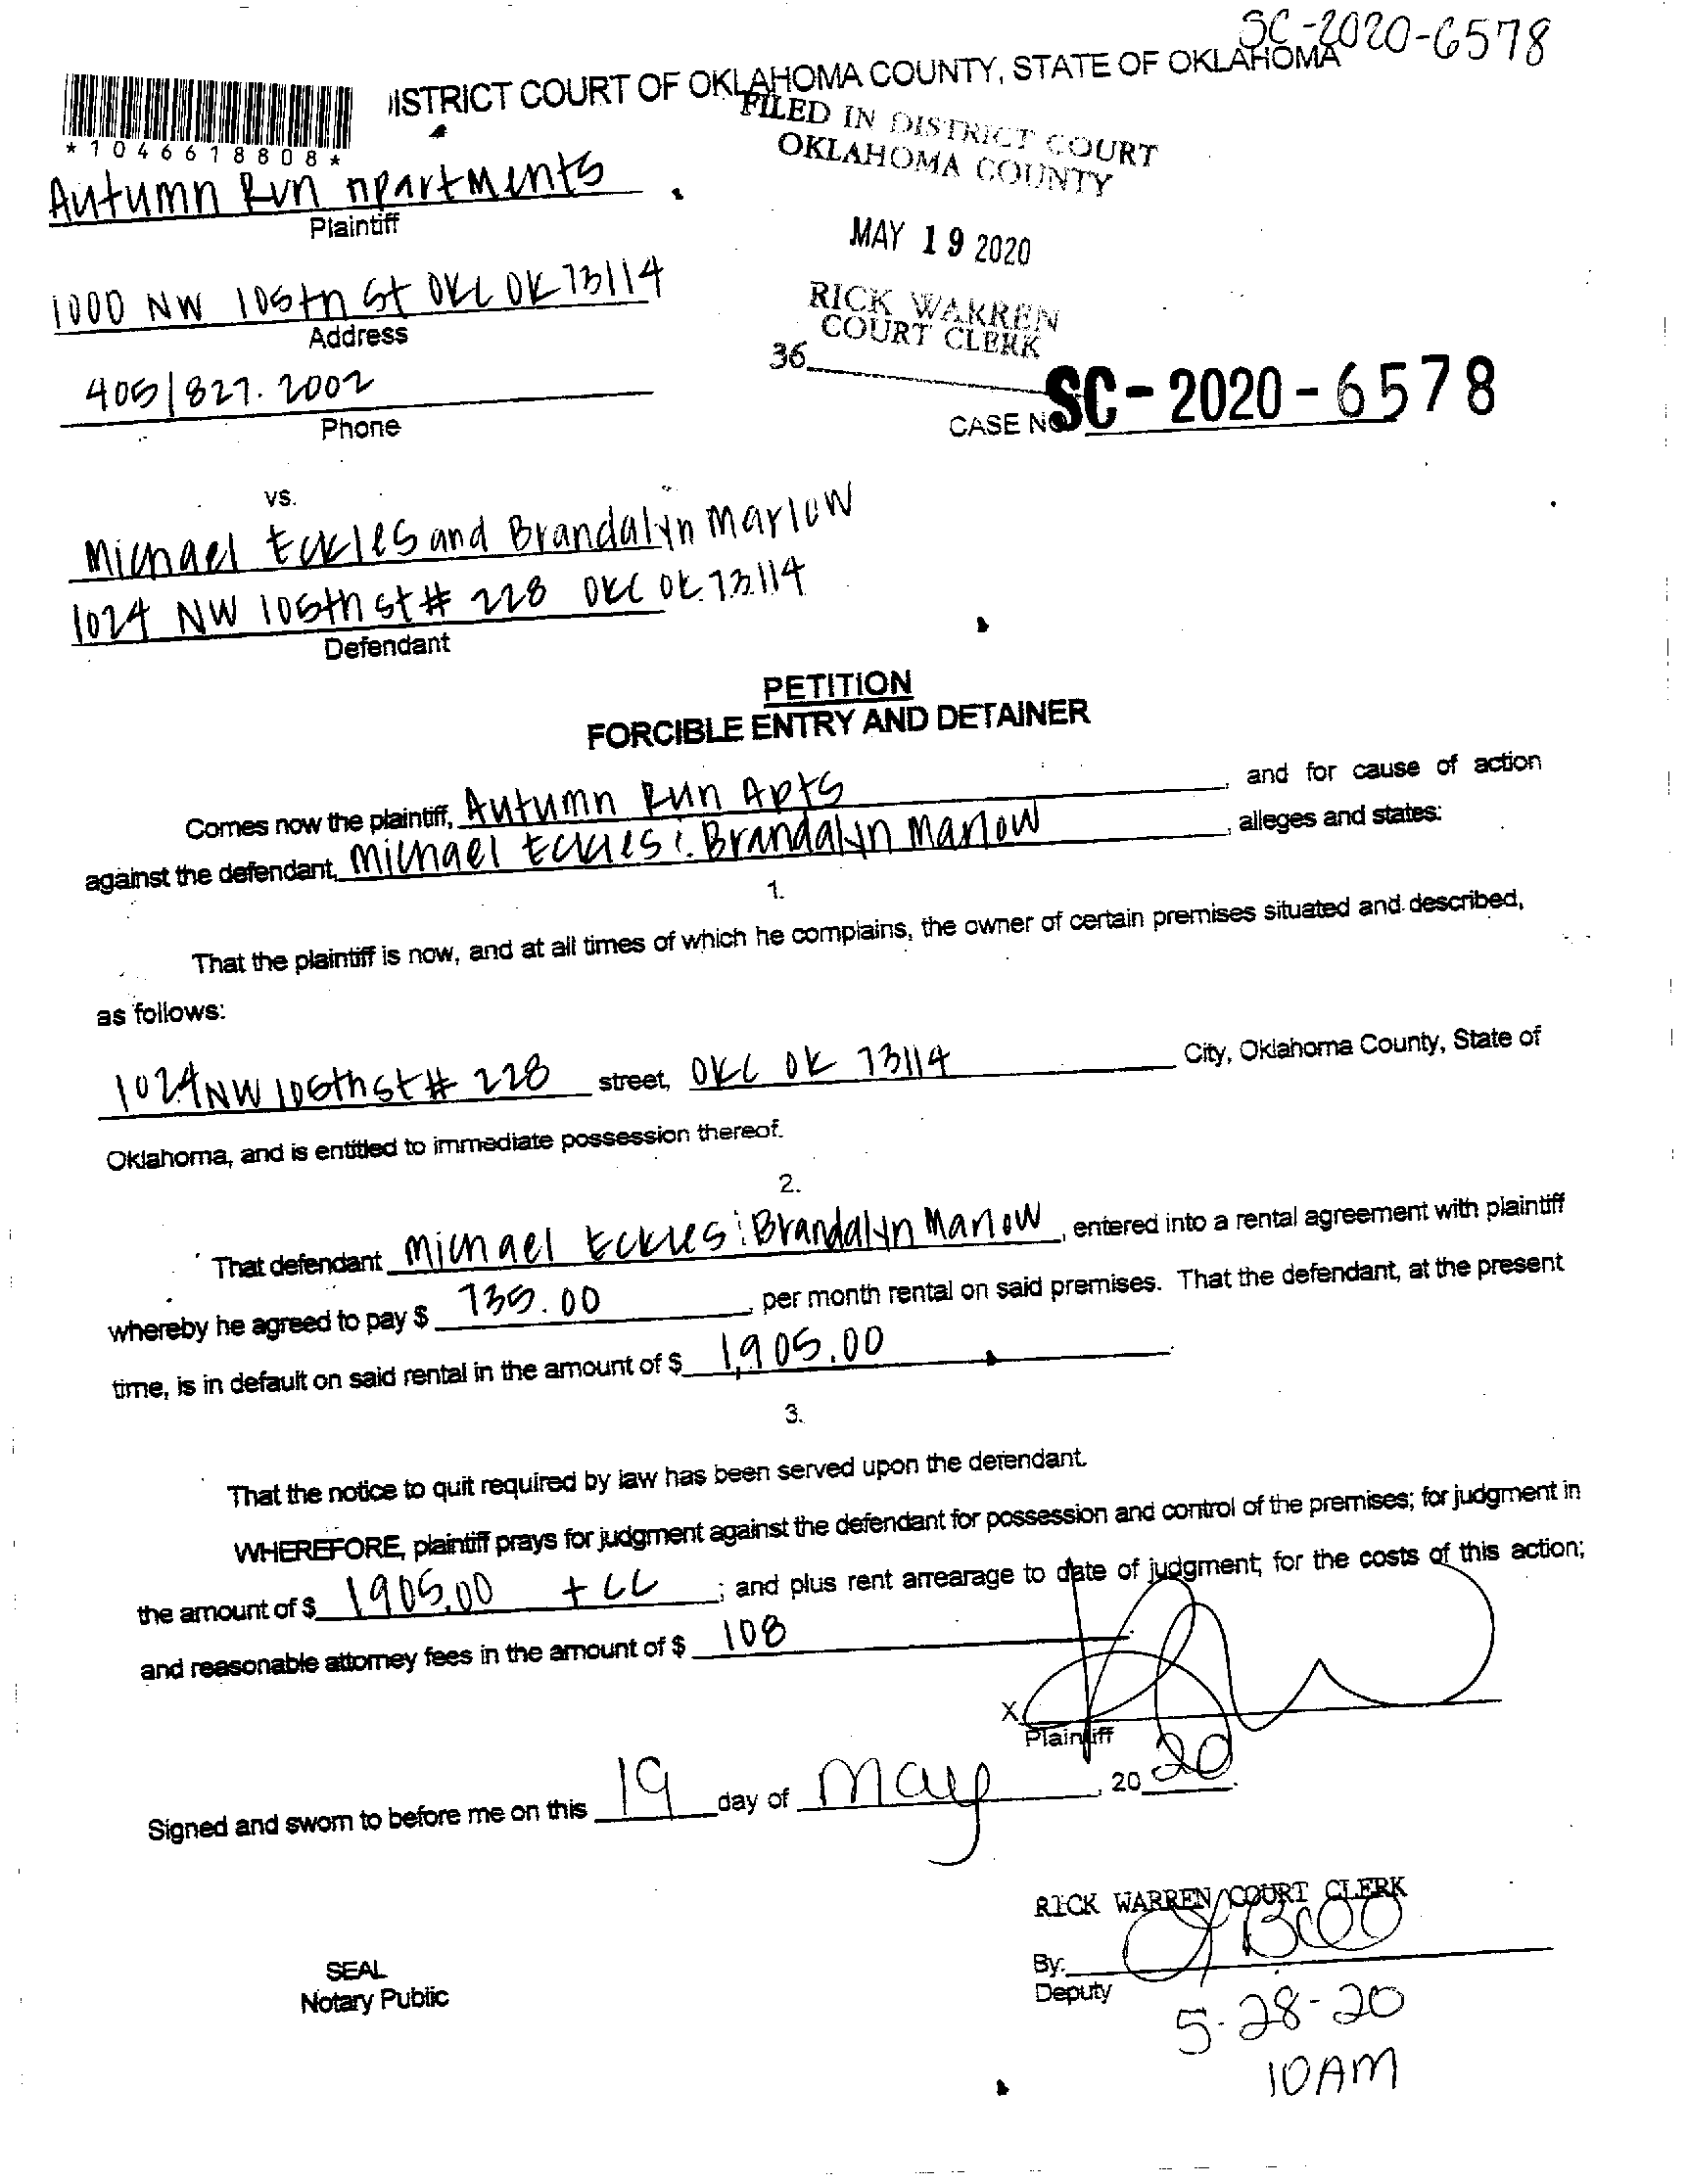 SC-2020-6578
ISTRICT COURT OF OKLAHOMA COUNTY, STATE OF OKLAHOMA
*1046618808*
FILED IN DISTRICT COURT
OKLAHOMA COUNTY
Autumn Run Apartments
Plaintiff
MAY 19 2020
1000 NW 105th St OKC OK 73114
Address
RICK WARREN
COURT CLERK
36
405/827.2002
Phone
CASE NO SC-2020-6578
vs.
Michael Eckles and Brandalyn Marlow
1024 NW 105th st # 228 OKC OK 73114
Defendant
PETITION
FORCIBLE ENTRY AND DETAINER
Comes now the plaintiff, Autumn Run Apts, and for cause of action
against the defendant, Michael Eckles & Brandalyn Marlow, alleges and states:
1.
That the plaintiff is now, and at all times of which he complains, the owner of certain premises situated and described,
as follows:
1024 NW 105th st # 228 street, OKC OK 73114 City, Oklahoma County, State of
Oklahoma, and is entitled to immediate possession thereof.
2.
That defendant Michael Eckles & Brandalyn Marlow, entered into a rental agreement with plaintiff
whereby he agreed to pay $ 735.00, per month rental on said premises. That the defendant, at the present
time, is in default on said rental in the amount of $ 1,905.00
3.
That the notice to quit required by law has been served upon the defendant.
WHEREFORE, plaintiff prays for judgment against the defendant for possession and control of the premises; for judgment in
the amount of $ 1905.00 + CC; and plus rent arrearage to date of judgment; for the costs of this action;
and reasonable attorney fees in the amount of $ 108.
X
Plaintiff
Signed and sworn to before me on this 19 day of May, 2020.
RICK WARREN, COURT CLERK
SEAL
Notary Public
By:
Deputy
5-28-20
10AM